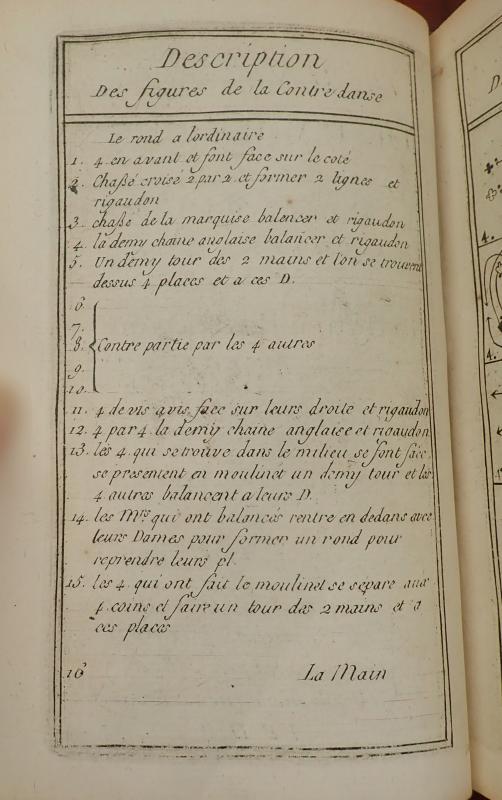 Description
Des figures de la Contre danse
Le rond a lordinaire
1. 4 en avant et font face sur le coté
2. Chaßé croisé 2 par 2 et former 2 lignes et
rigaudon
3 chaßé de la marquise balencer et rigaudon
4. la demy chaine anglaise balancer et rigaudon
5. Un demy tour des 2 mains et lon se trouvent
dessus 4 places et a ces D.
6
7.
8. Contre partie par les 4 autres
9.
10.
11. 4 de vis avis face sur leurs droite et rigaudon
12. 4 par 4 la demy chaine anglaise et rigaudon
13. les 4 qui se trouve dans le milieu se font face
se presentent en moulinet un demy tour et les
4 autres balancent a leurs D.
14. les Mrs qui ont balancés rentre en dedans avec
leurs Dames pour former un rond pour
reprendre leurs pl.
15. les 4 qui ont fait le moulinet se separe aux
4 coins et faire un tour des 2 mains et a
ces places
16 La Main